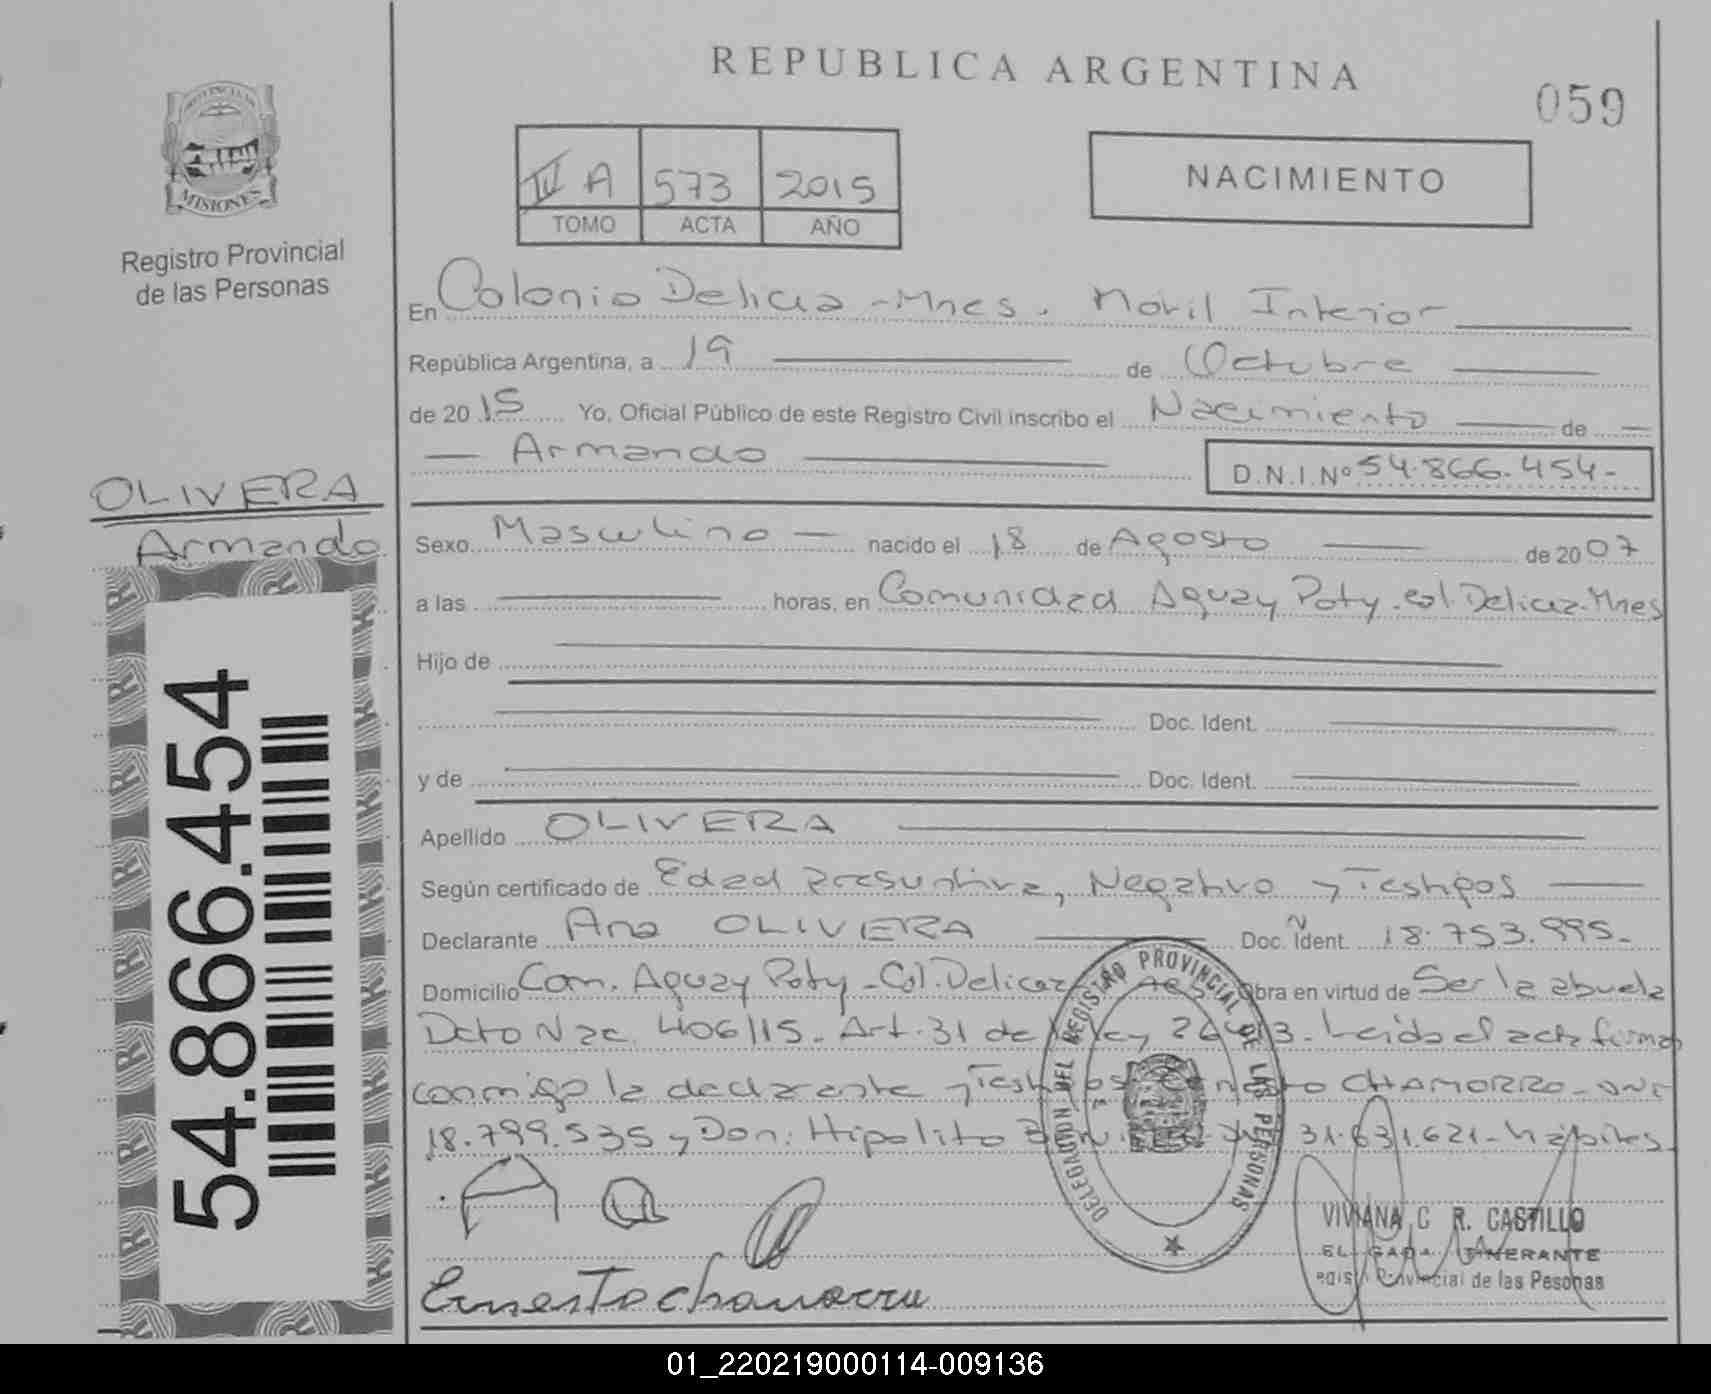 REPUBLICA ARGENTINA
059
PROVINCIA DE
MISIONES
Registro Provincial
de las Personas
IV A 573 2015
TOMO ACTA AÑO
NACIMIENTO
En Colonia Delicia - Mnes. Móvil Interior
República Argentina, a 19 de Octubre
de 2015 Yo, Oficial Público de este Registro Civil inscribo el Nacimiento de
Armando
D.N.I.Nº 54.866.454-
OLIVERA
Armando
54.866.454
Sexo Masculino nacido el 18 de Agosto de 2007
a las horas, en Comunidad Aguay Poty. Col. Delicia-Mnes
Hijo de
Doc. Ident.
y de Doc. Ident.
Apellido OLIVERA
Según certificado de Edad Presuntiva, Negativo y Testigos
Declarante Ana OLIVERA Doc. Ident. 18.753.995-
Domicilio Com. Aguay Poty - Col. Delicia Obra en virtud de Ser la abuela
Dcto Nac. 406/15. Art. 31 de Ley Leida el acta firman
conmigo la declarante y Testigos CHAMORRO - DNI
18.799.535 y Don: Hipolito 31.631.621- hábiles.
DELEGACION DEL REGISTRO PROVINCIAL DE LAS PERSONAS
Ernesto chamorro
VIVIANA C R. CASTILLO
ITINERANTE
Provincial de las Pesonas
01_220219000114-009136